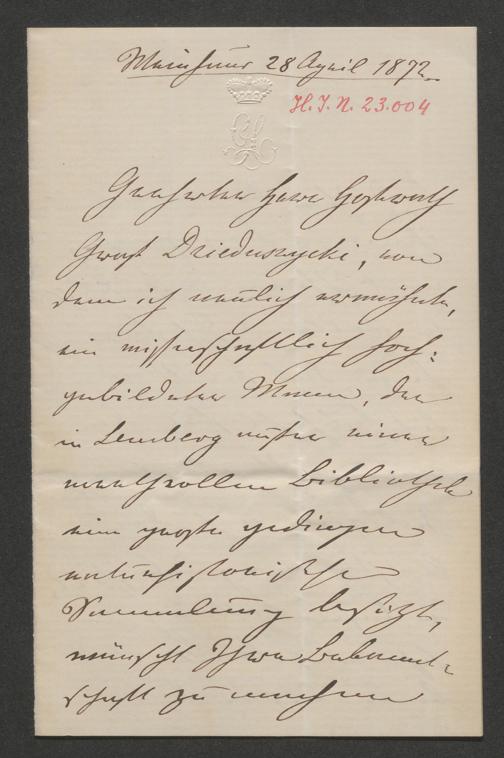 28 April 1872.
H.I.N. 23.004
Geehrter Herr Hofrath
Graf Dzieduszycki, von
dem ich neulich erwähnte,
ein wissenschaftlich hoch-
gebildeter Mann, der
in Lemberg außer einer
werthvollen Bibliothek
eine große gediegene
naturhistorische
Sammlung besitzt,
wünscht Ihre Bekannt-
schaft zu machen